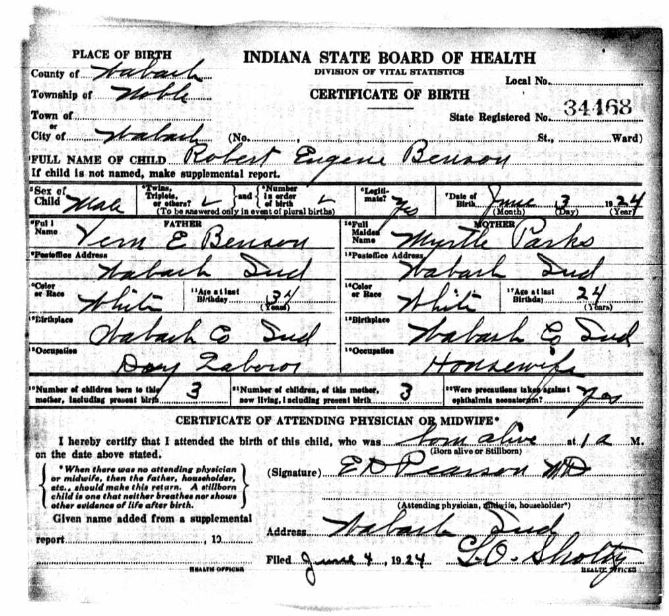 PLACE OF BIRTH
INDIANA STATE BOARD OF HEALTH
County of Wabash
DIVISION OF VITAL STATISTICS
Local No.
Township of Noble
CERTIFICATE OF BIRTH
Town of
State Registered No. 34468
or
City of Wabash (No. St., Ward)
FULL NAME OF CHILD Robert Eugene Benson
If child is not named, make supplemental report.
Sex of Child Male
Twins, Triplets, or others?
and
Number in order of birth
(To be answered only in event of plural births)
Legitimate? Yes
Date of Birth June 3 1924
(Month) (Day) (Year)
FATHER
Full Name Vern E Benson
MOTHER
Full Maiden Name Myrtle Parks
Postoffice Address Wabash Ind
Postoffice Address Wabash Ind
Color or Race White
Age at last Birthday 34 (Years)
Color or Race White
Age at last Birthday 24 (Years)
Birthplace Wabash Co Ind
Birthplace Wabash Co Ind
Occupation Day Laborer
Occupation Housewife
Number of children born to this mother, including present birth 3
Number of children, of this mother, now living, including present birth 3
Were precautions taken against ophthalmia neonatorum? Yes
CERTIFICATE OF ATTENDING PHYSICIAN OR MIDWIFE*
I hereby certify that I attended the birth of this child, who was born alive at 1 a M.
on the date above stated.
(Born alive or Stillborn)
*When there was no attending physician
or midwife, then the father, householder,
etc., should make this return. A stillborn
child is one that neither breathes nor shows
other evidence of life after birth.
(Signature) E D Pearson MD
(Attending physician, midwife, householder*)
Given name added from a supplemental
report , 19
Address Wabash Ind
Filed June 4, 1924 Sholty
HEALTH OFFICER
HEALTH OFFICER